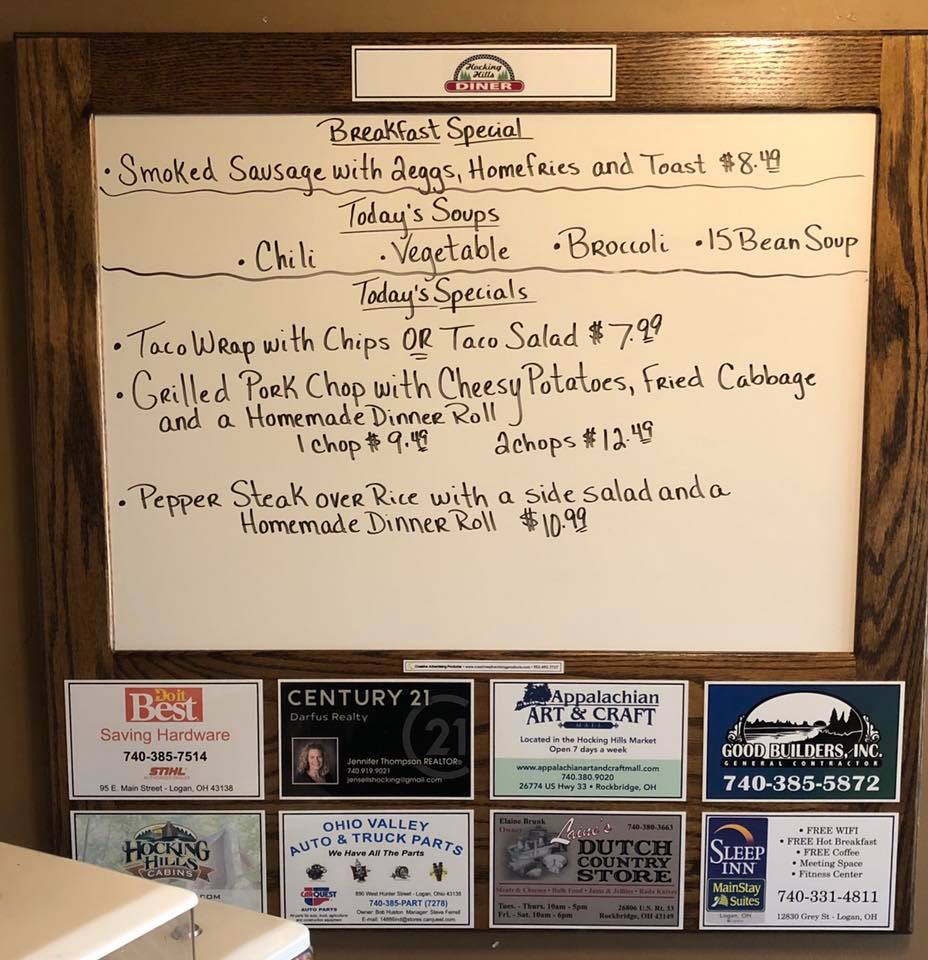 Hocking
Hills
DINER
Breakfast Special
• Smoked Sausage with 2eggs, Homefries and Toast $8.49
Today's Soups
• Chili • Vegetable • Broccoli • 15 Bean Soup
Today's Specials
• Taco Wrap with Chips OR Taco Salad $7.99
• Grilled Pork Chop with Cheesy Potatoes, Fried Cabbage
and a Homemade Dinner Roll
1 chop $9.49 2chops $12.49
• Pepper Steak over Rice with a side salad and a
Homemade Dinner Roll $10.99
Do it
Best
Saving Hardware
740-385-7514
STIHL
95 E. Main Street - Logan, OH 43138
CENTURY 21
Darfus Realty
21
Jennifer Thompson REALTOR®
740.919.9021
jensellshocking@gmail.com
Appalachian
ART & CRAFT
MALL
Located in the Hocking Hills Market
Open 7 days a week
www.appalachianartandcraftmall.com
740.380.9020
26774 US Hwy 33 • Rockbridge, OH
GOOD BUILDERS, INC.
GENERAL CONTRACTOR
740-385-5872
HOCKING
HILLS
CABINS
.COM
OHIO VALLEY
AUTO & TRUCK PARTS
We Have All The Parts
CARQUEST
AUTO PARTS
890 West Hunter Street - Logan, Ohio 43138
740-385-PART (7278)
Owner: Bob Huston Manager: Steve Ferrell
Elaine Brunk
Owner
740-380-3663
Laine's
DUTCH
COUNTRY
STORE
Meats & Cheeses • Bulk Food • Jams & Jellies • Rada Knives
Tues. - Thurs. 10am - 5pm
Fri. - Sat. 10am - 6pm
26806 U.S. Rt. 33
Rockbridge, OH 43149
SLEEP
INN
MainStay
Suites
Logan, OH
• FREE WIFI
• FREE Hot Breakfast
• FREE Coffee
• Meeting Space
• Fitness Center
740-331-4811
12830 Grey St - Logan, OH